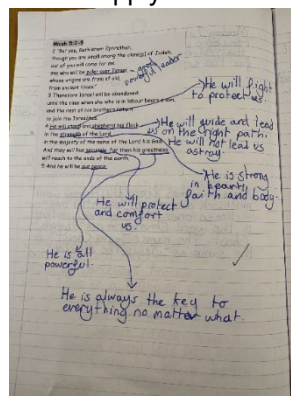 Micah 5:2-5
2 "But you, Bethlehem Ephrathah,
though you are small among the clans[a] of Judah,
out of you will come for me
one who will be ruler over Israel,
whose origins are from of old,
from ancient times."
3 Therefore Israel will be abandoned
until the time when she who is in labour bears a son,
and the rest of his brothers return
to join the Israelites.
4 He will stand and shepherd his flock
in the strength of the Lord,
in the majesty of the name of the Lord his God.
And they will live securely, for then his greatness
will reach to the ends of the earth.
5 And he will be our peace
powerful leader
He will fight
to protect us.
He will guide and lead
us on the right path.
He will not lead us
astray
He is strong
in beauty,
faith and body.
He will protect
and comfort
us.
He is all
powerful.
He is always the key to
everything no matter what.